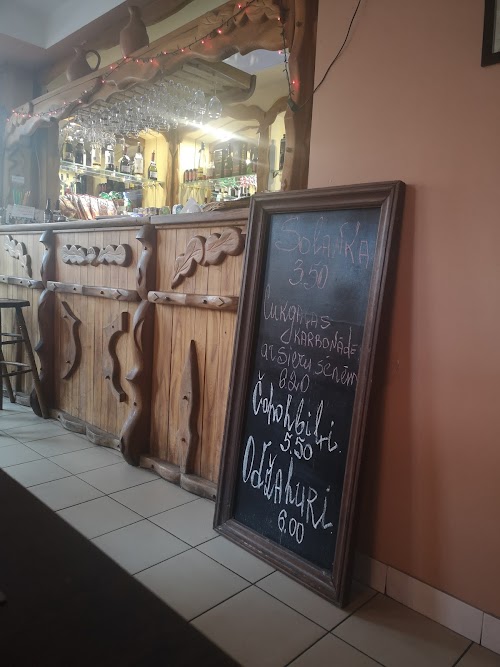 Solaņka
3.50
Cūkgaļas
karbonāde
ar sieru sēnēm
8.20
Čahohbili.
5.50
Odžahuri.
6.00